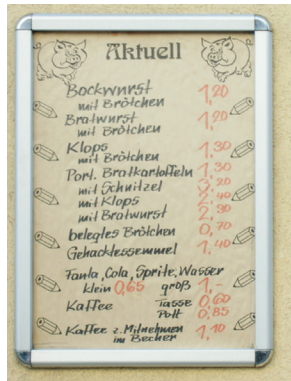 Aktuell
Bockwurst 1,20
mit Brötchen
Bratwurst 1,20
mit Brötchen
Klops 1,30
mit Brötchen
Port. Bratkartoffeln 1,30
mit Schnitzel 3,20
mit Klops 2,40
mit Bratwurst 2,30
belegtes Brötchen 0,70
Gehacktessemmel 1,40
Fanta, Cola, Sprite, Wasser
klein 0,65 groß 1,-
Kaffee Tasse 0,60
Pott 0,85
Kaffee z. Mitnehmen 1,10
im Becher